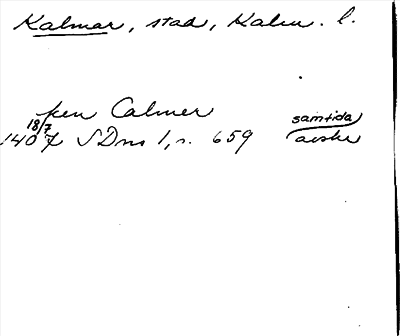 Kalmar, stad, Kalm. l.
pen Calmer
18/7 samtida
1407 SDns 1, s. 659 avskr